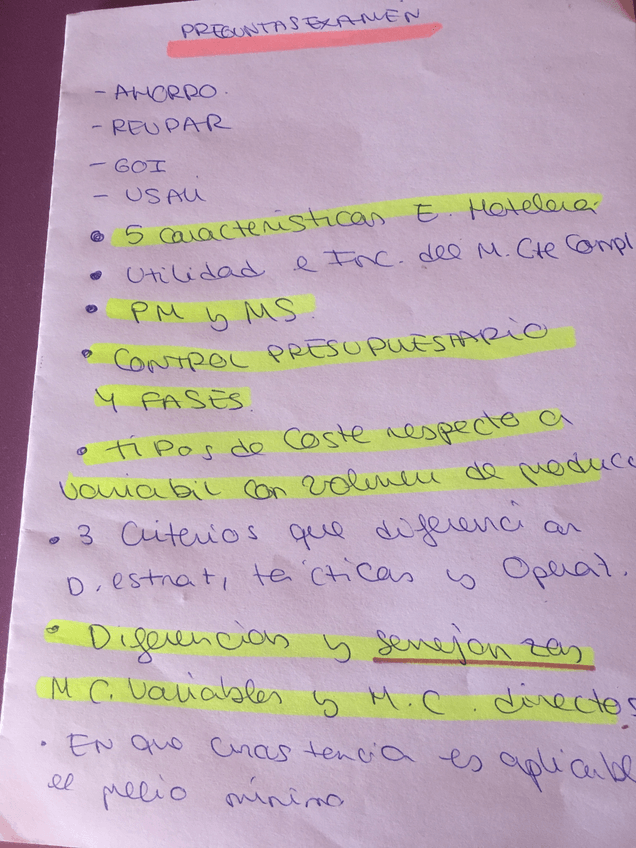 PREGUNTAS EXAMEN
- AHORRO.
- REVPAR
- GOI
- USALI
• 5 características E. Hotelera.
• Utilidad e Inc. del M. Cte Compl
• PM y MS.
• CONTROL PRESUPUESTARIO
Y FASES.
• tipos de coste respecto a
variabil con volumen de produc
• 3 Criterios que diferencian
D. estrat, tácticas y Operat.
• Diferencias y semejanzas
M C. Variables y M. C. directos
• EN que circunstancia es aplicable
el precio mínimo